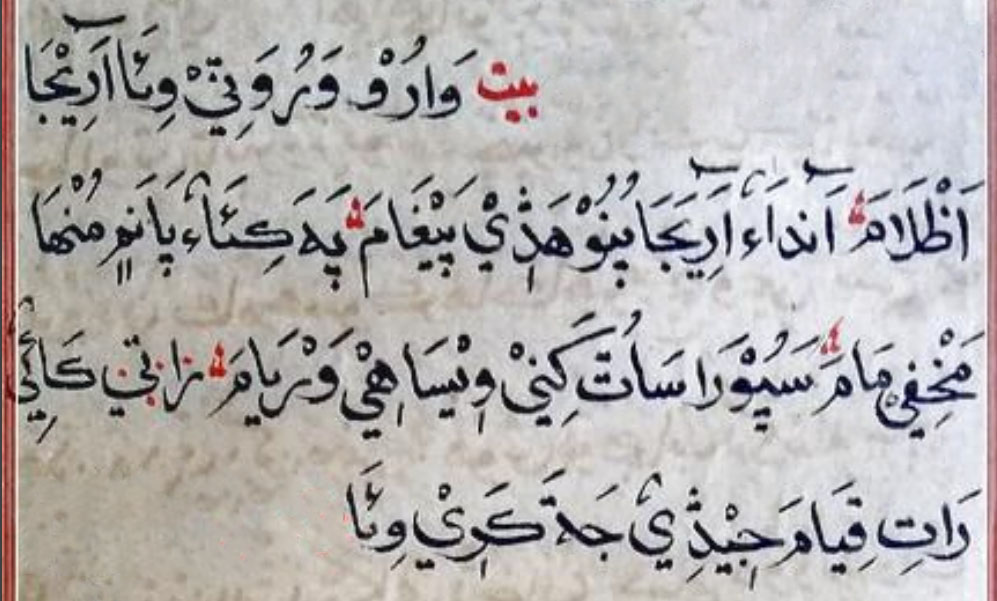 بيت وَارُوْ وَرُوَتِيْ وِئَا آرِيْجَا
اَظْلَامَ؞ آنداءَ آرِيَجَا پنُوْ هَدِيْ پَيْغَامَ؞ پَہ كِئَاءَ پَانَمِ مُنْهَا
مَخْفِي مَامَ؞ سَپُوْرَا سَاتَ كَنِيْ وِيْسَاهِيْ وَرِيَامَ؞ رَاتِيْ كَائِيْ
رَاتِ قِيَامَ جِيْذِيْ جَہ كَرِيْ وِئَا